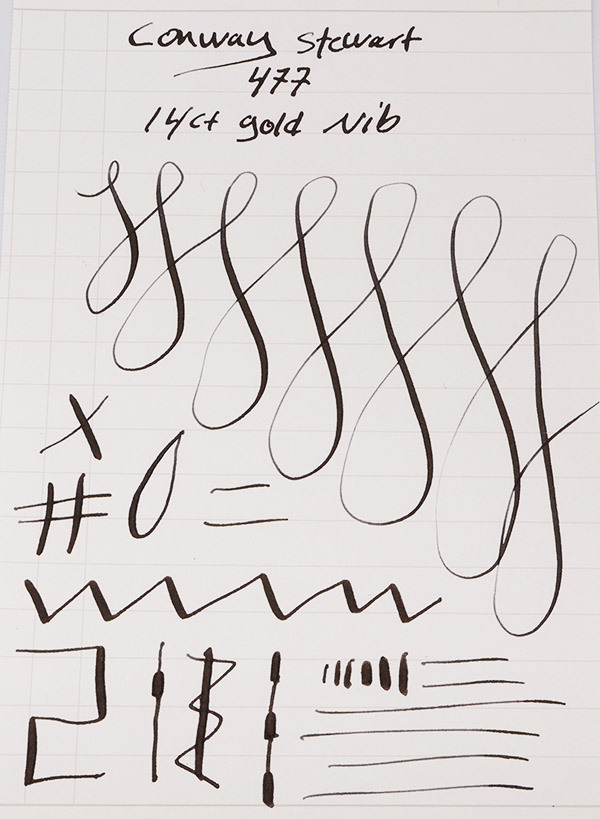 Conway Stewart
477
14ct gold Nib
x
# 0 =